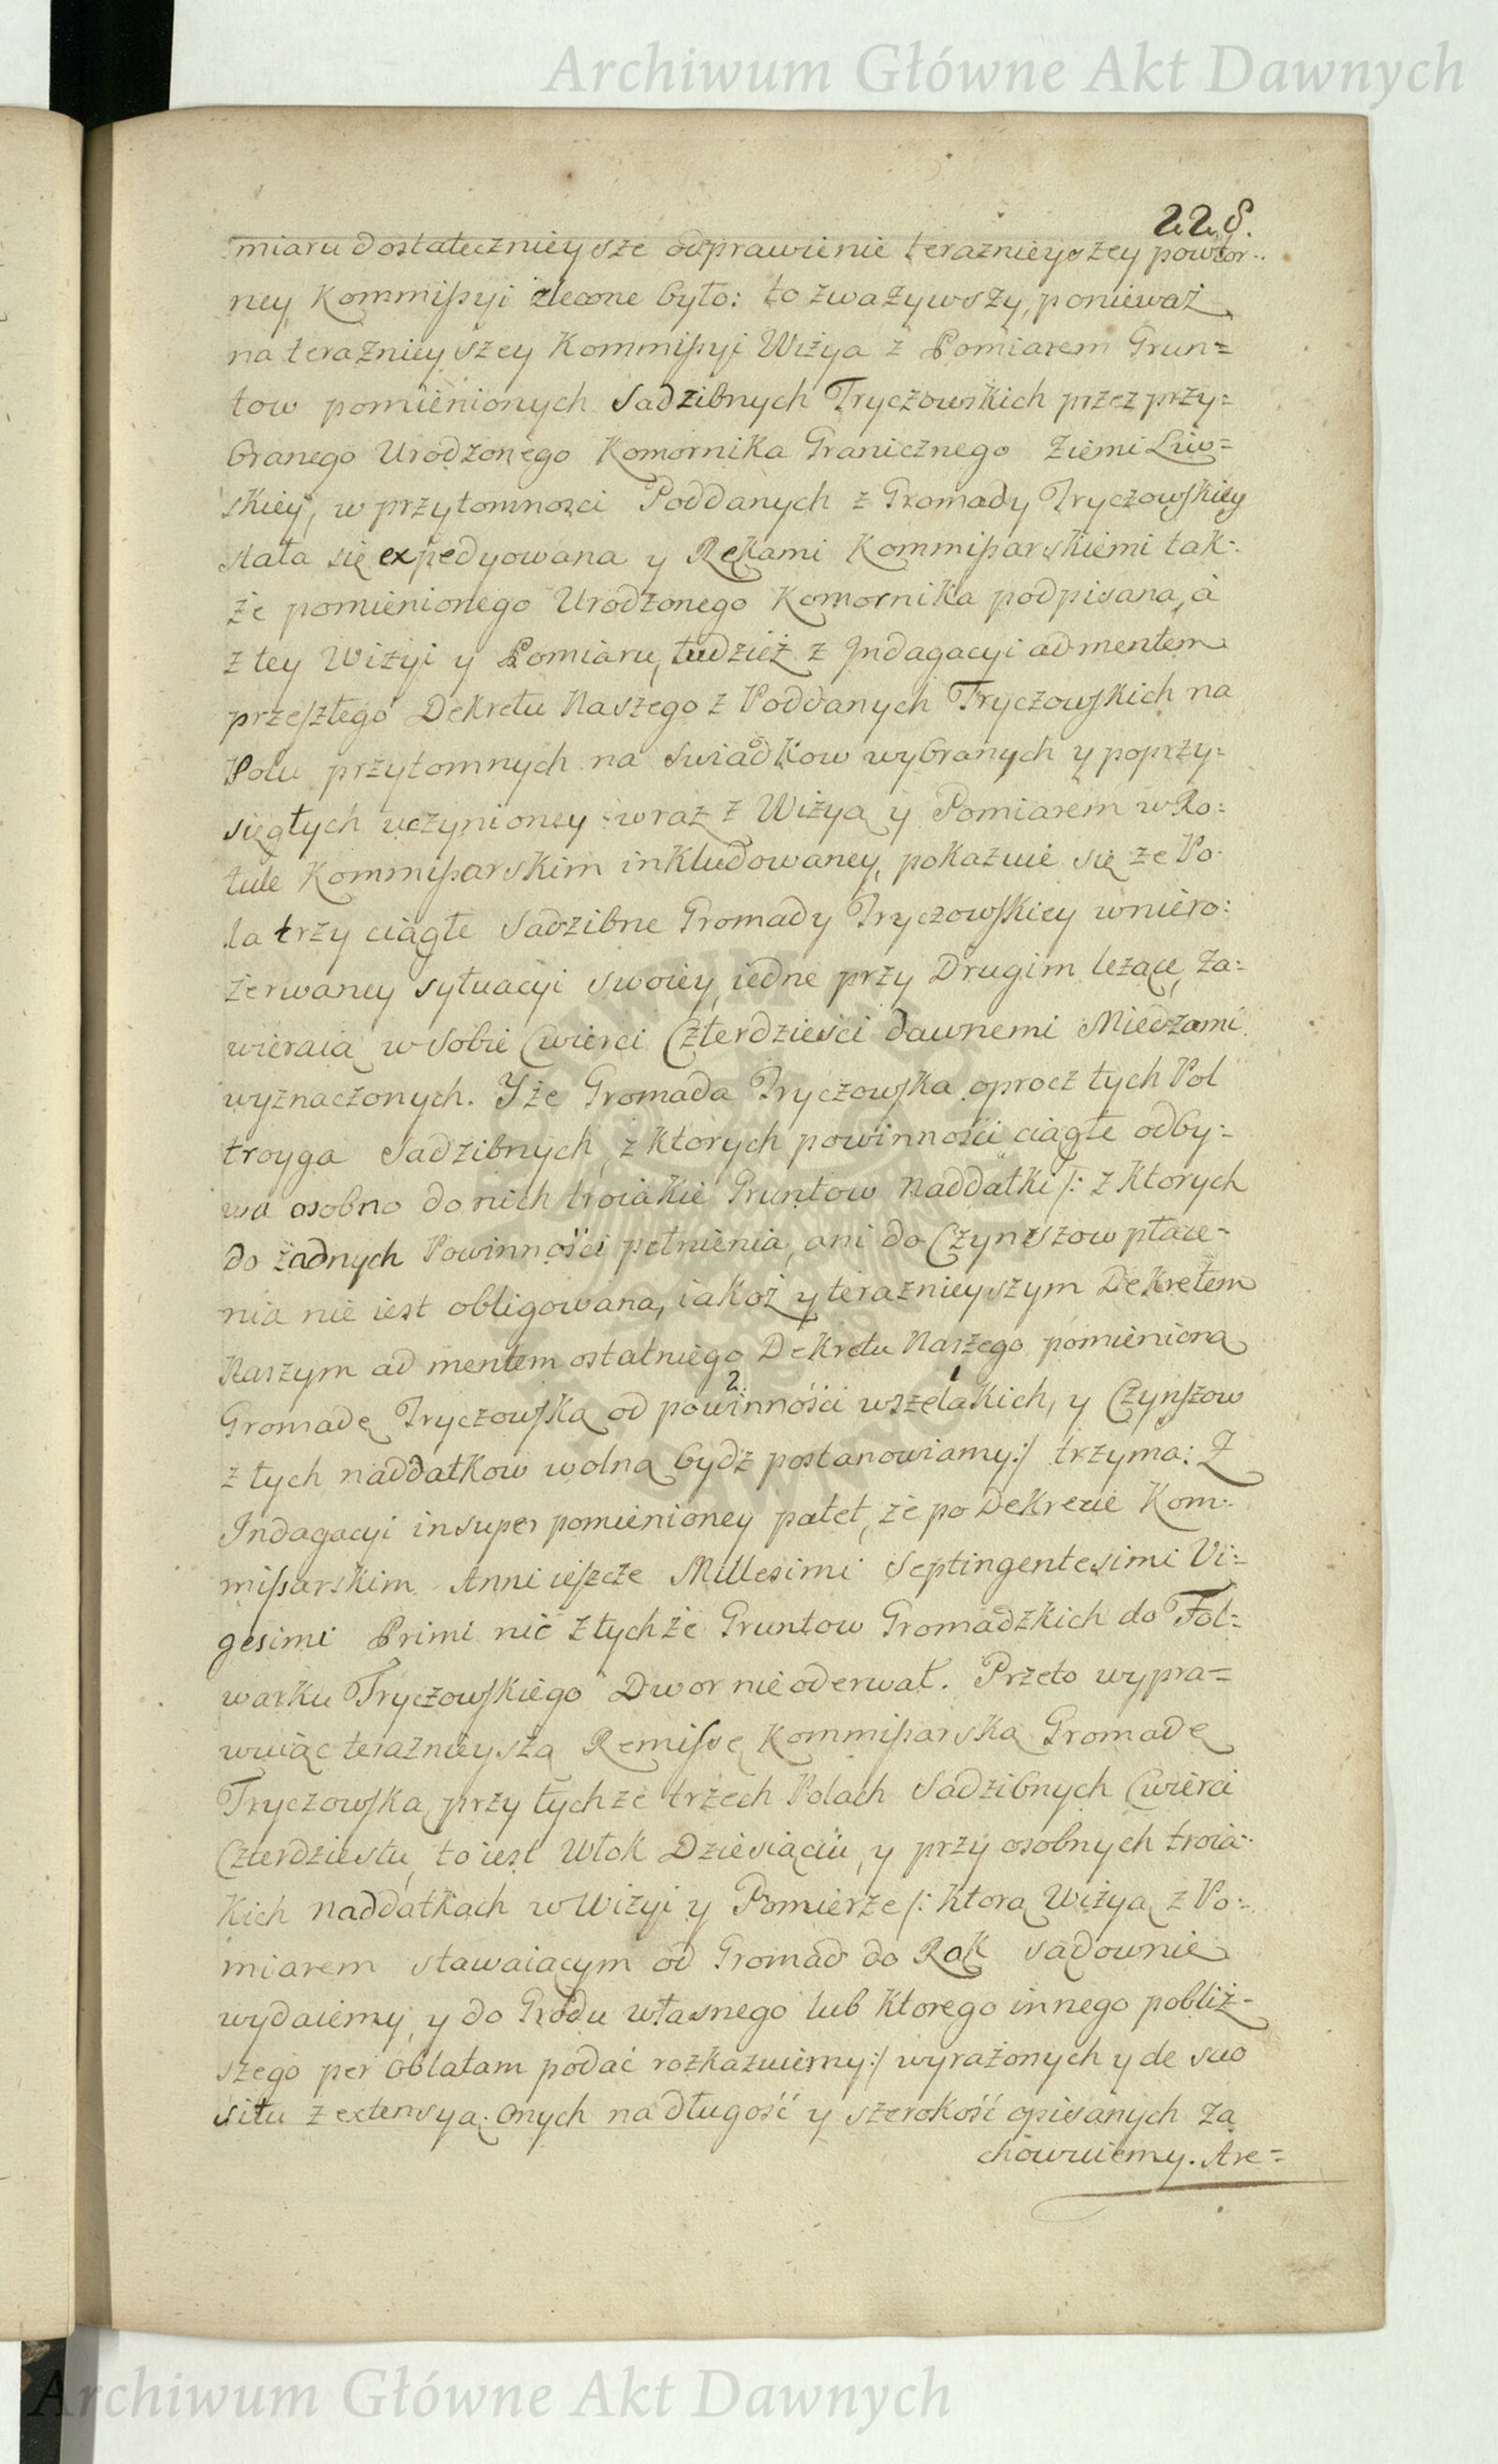 Archiwum Główne Akt Dawnych
228.
miaru dostatecznieysze odprawienie teraznieyszey powtor-
ney Kommissyi zlecone było: to zwazywszy, ponieważ
na teraznieyszey Kommissyi Wizya z Pomiarem Grun=
tow pomienionych Sadzibnych Tryczowskich przez przy=
branego Urodzonego Komornika Granicznego Ziemi Liw=
skiey, w przytomnosci Poddanych z Gromady Tryczowskiey
stała się expedyowana y Rękami Kommissarskiemi tak=
że pomienionego Urodzonego Komornika podpisana, à
z tey Wizyi y Pomiaru, tudzież z Indagacyi ad mentem
przeszłego Dekretu Naszego z Poddanych Tryczowskich na
Polu przytomnych na Swiadkow wybranych y poprzy=
sięgłych uczynioney wraz z Wizyą y Pomiarem w Ro=
tule Kommissarskim inkludowaney, pokazuie się że Po-
la trzy ciągłe Sadzibne Gromady Tryczowskiey w niero=
zerwaney sytuacyi swoiey, iedne przy Drugim leżące, za=
wieraią w sobie Cwierci Czterdzieści dawnemi Miedzami
wyznaczonych. Y że Gromada Tryczowska oprocz tych Pol
troyga Sadzibnych, z ktorych powinności ciągłe odby=
wa osobno do nich troiakie Gruntow naddatki /: z ktorych
do żadnych Powinności pełnienia, ani do Czynszow płace=
nia nie iest obligowana, iakoż y teraznieyszym Dekretem
Naszym ad mentem ostatniego Dekretu Naszego pomienioną
2.
Gromadę Tryczowską od powinności wszelakich, y Czynszow
z tych naddatkow wolną bydź postanowiamy:/ trzyma: Z
Indagacyi insuper pomienioney patet, że po Dekrecie Kom=
missarskim Anni ieszcze Millesimi Septingentesimi Vi=
gesimi Primi nic z tychże Gruntow Gromadzkich do Fol=
warku Tryczowskiego Dwor nie oderwał. Przeto wypra=
wuiąc teraznieyszą Remissę Kommissarską Gromadę
Tryczowską przy tychze trzech Polach Sadzibnych Cwierci
Czterdziestu, to iest Włok Dziesiąciu, y przy osobnych troia=
kich naddatkach w Wizyi y Pomierze /: ktorą Wizyą z Po=
miarem stawaiącym od Gromad do Rąk sądownie
wydaiemy, y do Grodu własnego lub ktorego innego pobliż=
szego per oblatam podać rozkazuiemy:/ wyrażonych y de suo
situ z extensyą onych na długość y szerokość opisanych za
chowuiemy. Are=
Archiwum Główne Akt Dawnych